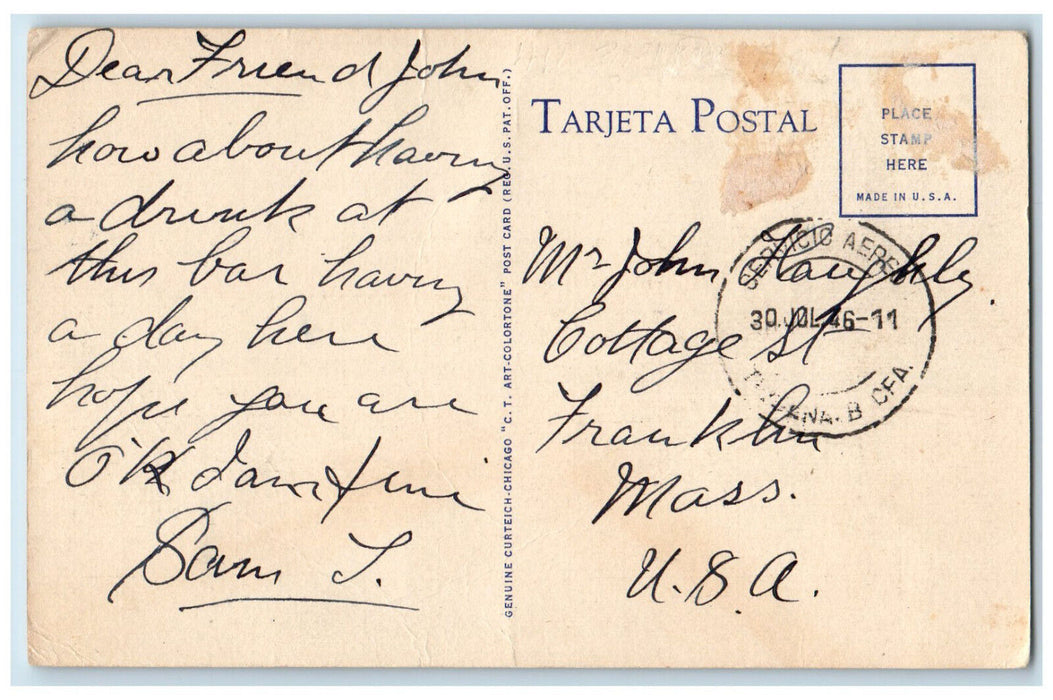 Dear Friend John
how about having
a drink at
this bar having
a day here
hope you are
O'K I am fine
Sam S.
GENUINE CURTEICH-CHICAGO "C. T. ART-COLORTONE" POST CARD (REG. U.S. PAT. OFF.)
TARJETA POSTAL
PLACE
STAMP
HERE
MADE IN U.S.A.
SERVICIO AEREO
30 JUL 46-11
TIJUANA. B CFA.
Mr John
Cottage St
Franklin
Mass.
U.S.A.